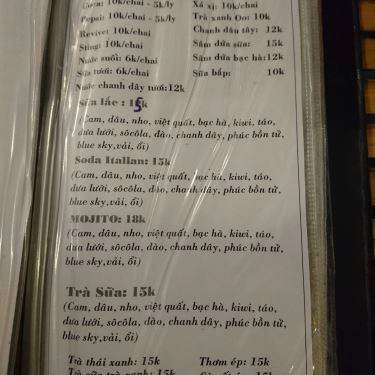 Coca: 10k/chai - 5k/ly
Xá xị: 10k/chai
Pepsi: 10k/chai - 5k/ly
Trà xanh Oo: 10k
Revive: 10k/chai
Chanh dây tây: 12k
Sting: 10k/chai
Sâm dứa sữa: 15k
Nước suối: 6k/chai
Sâm dứa bạc hà: 12k
Sữa tươi: 6k/chai
Sữa bắp: 10k
Nước chanh dây tươi: 12k
Sữa lắc : 15k
(Cam, dâu, nho, việt quất, bạc hà, kiwi, táo,
dưa lưới, sôcôla, đào, chanh dây, phúc bồn tử,
blue sky,vải, ổi)
Soda Italian: 15k
(Cam, dâu, nho, việt quất, bạc hà, kiwi, táo,
dưa lưới, sôcôla, đào, chanh dây, phúc bồn tử,
blue sky,vải, ổi)
MOJITO: 18k
(Cam, dâu, nho, việt quất, bạc hà, kiwi, táo,
dưa lưới, sôcôla, đào, chanh dây, phúc bồn tử,
blue sky,vải, ổi)
Trà Sữa: 15k
(Cam, dâu, nho, việt quất, bạc hà, kiwi, táo,
dưa lưới, sôcôla, đào, chanh dây, phúc bồn tử,
blue sky,vải, ổi)
Trà thái xanh: 15k
Thơm ép: 15k
Trà sữa trà xanh: 15k